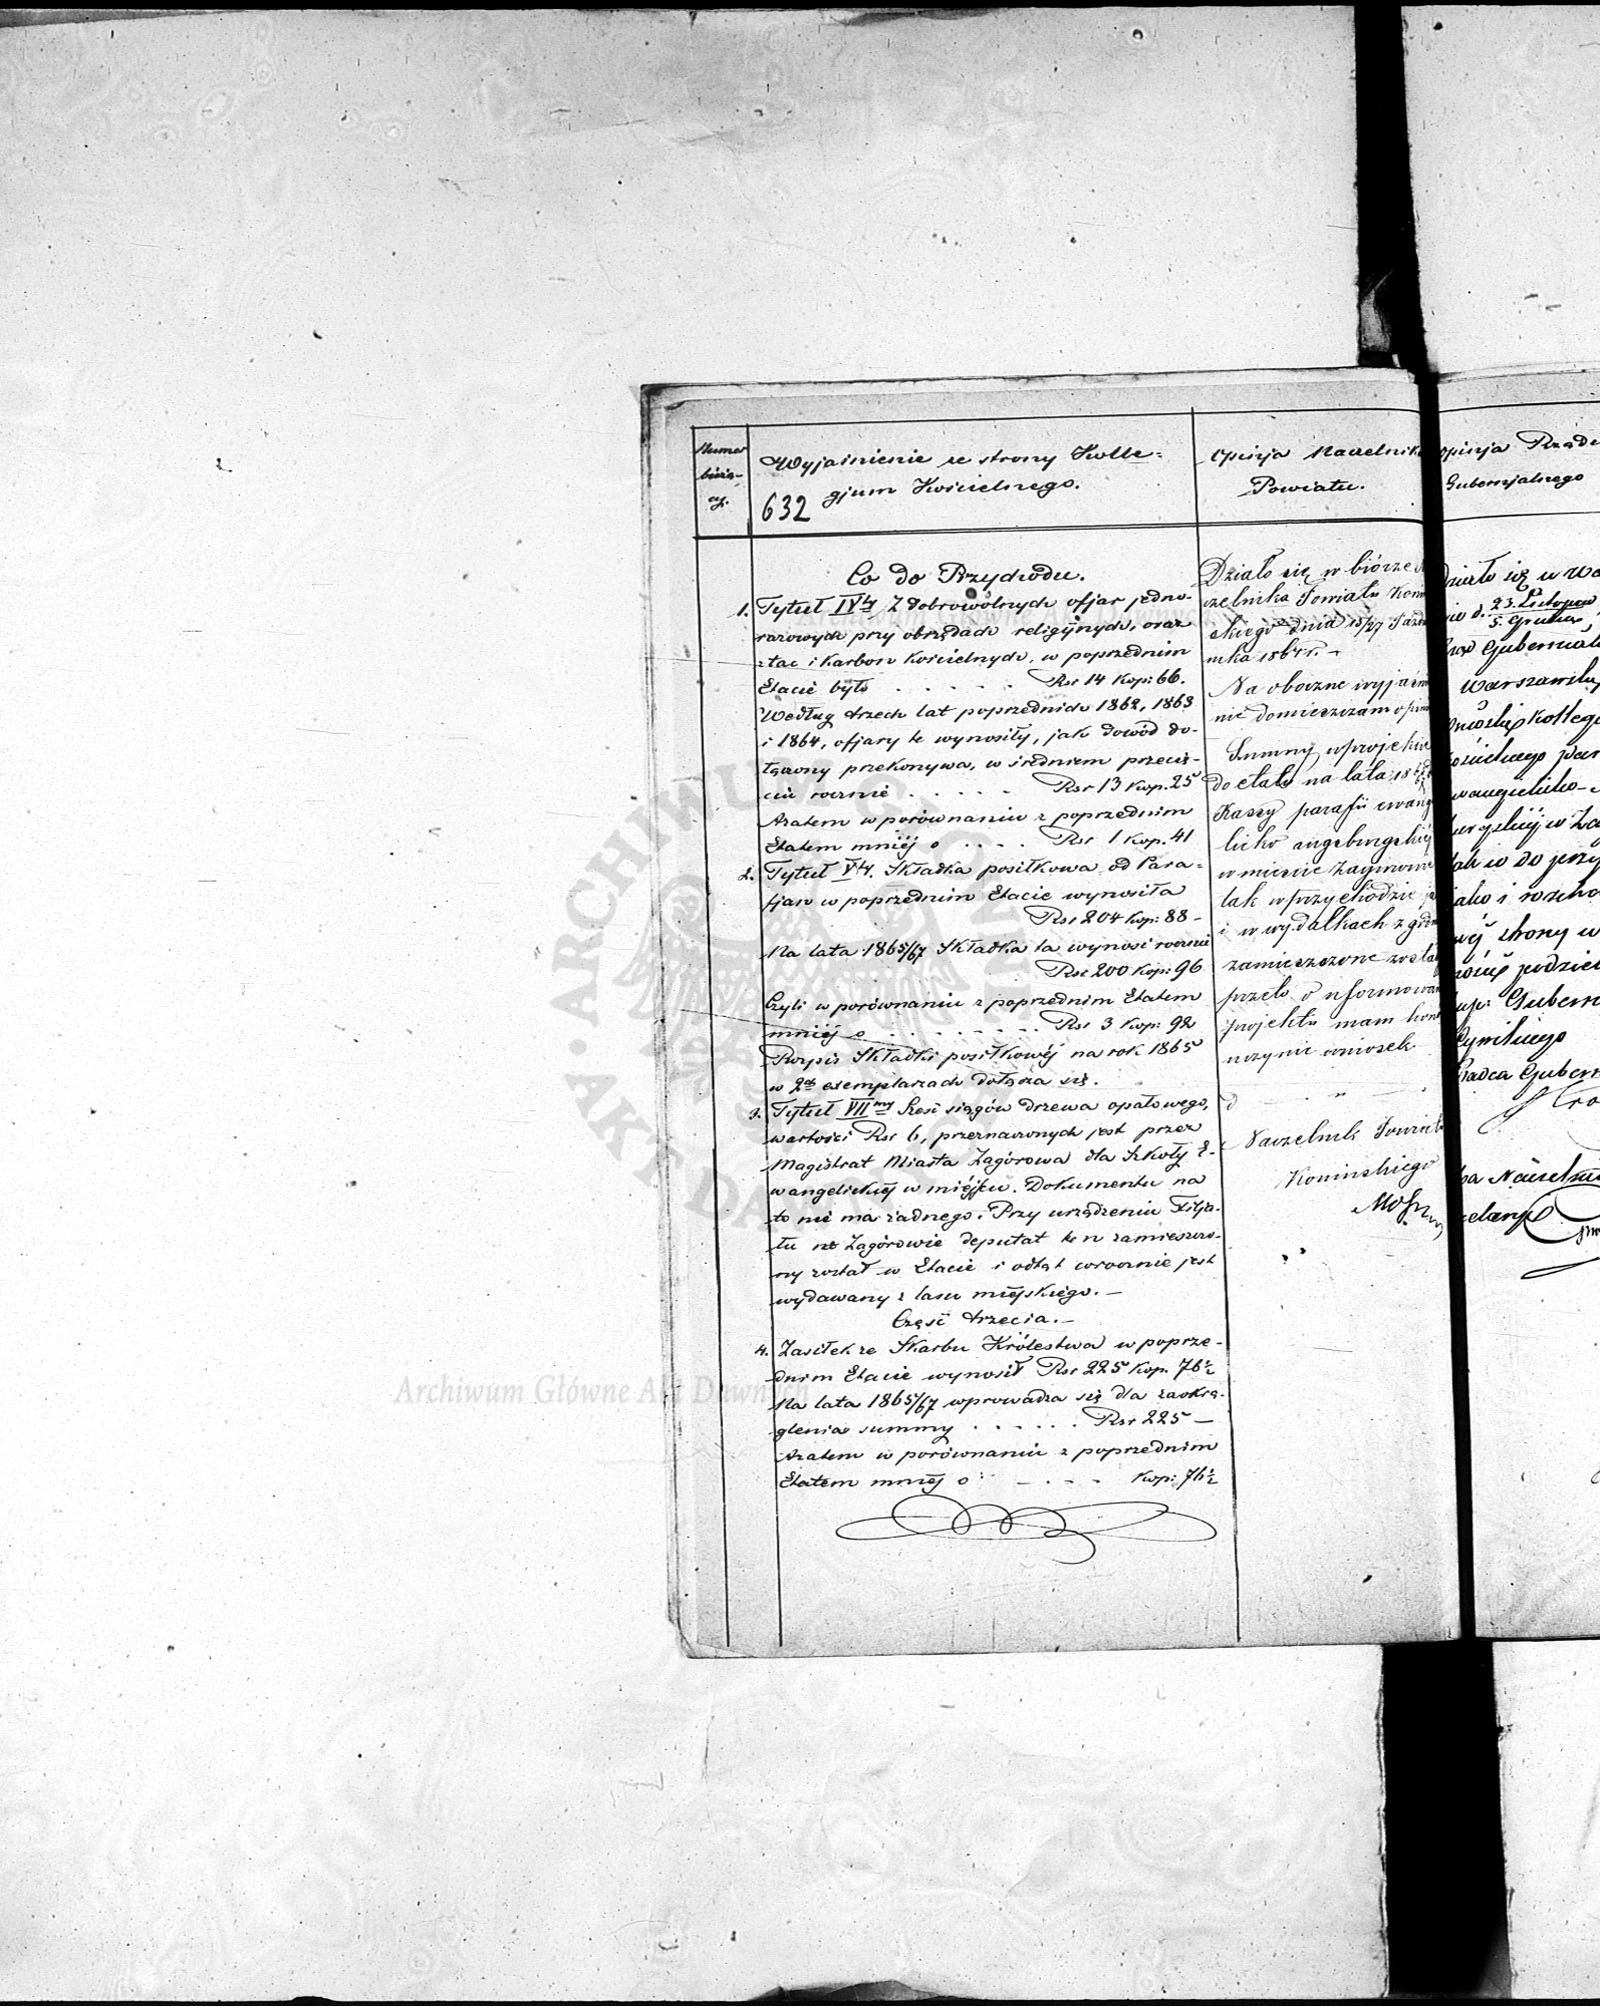 Numer
bieżą-
cy.
Wyjaśnienie ze strony Kolle=
gjum Kościelnego.
632
Opinja Naczelnika
Powiatu.
Opinja Rządu
Gubernjalnego
Co do Przychodu.
1. Tytuł IVty Z dobrowolnych ofjar jedno-
razowych przy obrzędach religijnych, oraz
z tac i Karbon Kościelnych, w poprzednim
Etacie było . . . . . Rsr 14 Kop: 66.
Według trzech lat poprzednich 1862, 1863
i 1864, ofjary te wynosiły, jak dowód do-
łączony przekonywa, w średniem przecię-
ciu rocznie . . . . . Rsr 13 Kop. 25
Azatem w porównaniu z poprzednim
Etatem mniéj o . . . . Rsr 1 Kop. 41
2. Tytuł Vty. Składka posiłkowa od Para=
fjan w poprzednim Etacie wynosiła
Rsr 204 Kop: 88 -
Na lata 1865/67 Składka ta wynosi rocznie
Rsr 200 Kop: 96
Czyli w porównaniu z poprzednim Etatem
mniéj o . . . . . . . . Rsr 3 Kop: 92
Rozpis Składki posiłkowéj na rok 1865
w 2ch exemplarzach dołącza się.
3. Tytuł VIImy Sześć siągów drzewa opałowego,
wartości Rsr 6, przeznaczonych jest przez
Magistrat Miasta Zagórowa dla Szkoły E-
wangelickiéj w miéjscu. Dokumentu na
to nie ma żadnego. Przy urządzeniu Filja-
łu w Zagórowie deputat ten zamieszczo-
ny został w Etacie i odtąd corocznie jest
wydawany z lasu miéjskiego. —
Część trzecia. —
4. Zasiłek ze Skarbu Królestwa w poprze-
dnim Etacie wynosił Rsr 225 Kop. 76½
Na lata 1865/67 wprowadza się dla zaokrą-
glenia summy . . . . . . Rsr 225 —
Azatem w porównaniu z poprzednim
Etatem mniéj o . . . . Kop: 76½
Działo się w biórze
czelnika Powiatu Koni
skiego dnia 15/27 Paźdz
nika 1864 r. —
Na oboczne wyjaśnie
nie domieszczam opin
Summy w projekcie
do etatu na lata 18
Kassy parafii ewange
licko augsburgskiéj
w mieście Zagórowie
tak w przychodzie ja
i w wydatkach z
zamieszczone zostały
przeto o uformowanie
projektu mam honor
uczynić wniosek
Naczelnik Powiatu
Konińskiego
działo się w Wa
wie d. 23 Listopada
5 Grudnia
Rząd Gubernialn
Warszawski
wniosku Kolleg
kościelnego para
ewangelicko-
burgskiéj w Za
tak co do przy
jako i rozcho
swéj strony w
podziel
Gubern
Cywilnego
Radca Gubern
za Naczelnika